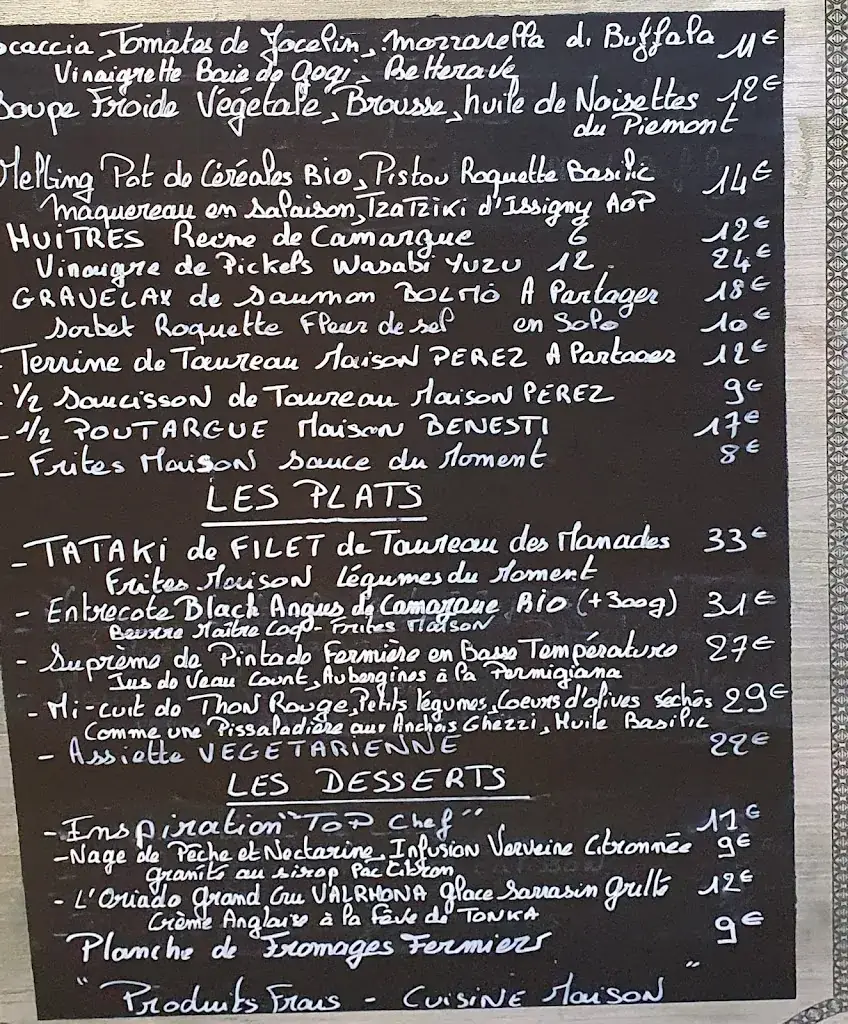 ocaccia, Tomates de Jocelin, mozzarella di Buffala 11€
Vinaigrette Baie de Gogi, Betterave
Soupe Froide Végétale, Brousse, huile de Noisettes 12€
du Piemont
Melting Pot de Céréales Bio, Pistou Roquette Basilic 14€
Maquereau en Salaison, Tzatziki d'Issigny AOP
HUITRES Reine de Camargue 6 12€
Vinaigre de Pickels Wasabi YUZU 12 24€
GRAVELAX de Saumon BOLMÖ A Partager 18€
Sorbet Roquette Fleur de sel en Solo 10€
- Terrine de Taureau Maison PEREZ A Partager 12€
- 1/2 Saucisson de Taureau Maison PEREZ 9€
- 1/2 POUTARGUE Maison BENESTI 17€
- Frites Maison Sauce du Moment 8€
LES PLATS
- TATAKI de FILET de Taureau des Manades 33€
Frites Maison légumes du Moment
- Entrecote Black Angus de Camargue Bio (+300g) 31€
Beurre Maître Coq - Frites Maison
- Suprème de Pintade Fermière en Basse Température 27€
Jus de Veau Court, Aubergines à la Parmigiana
- Mi-cuit de Thon Rouge, Petits légumes, Coeurs d'olives séchés 29€
Comme une Pissaladière aux Anchois Ghezzi, Huile Basilic
- Assiette VEGETARIENNE 22€
LES DESSERTS
- Inspiration "TOP Chef" 11€
- Nage de Pêche et Nectarine, Infusion Verveine Citronnée 9€
granité au sirop Pac Citron
- L'Oriado Grand Cru VALRHONA glace Sarrasin grillé 12€
Crème Anglaise à la fève de TONKA
Planche de Fromages Fermiers 9€
"Produits Frais - CUISINE Maison"